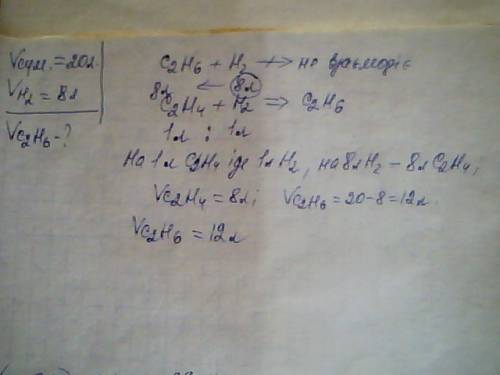 Vсум. = 20л.
VH₂ = 8л
VC₂H₆ - ?
C₂H₆ + H₂ ↛ не взаємодіє
8л ← 8л
C₂H₄ + H₂ ⇒ C₂H₆
1л : 1л
На 1л C₂H₄ іде 1л H₂, на 8л H₂ – 8л C₂H₄;
VC₂H₄ = 8л; VC₂H₆ = 20-8 = 12л.
VC₂H₆ = 12л